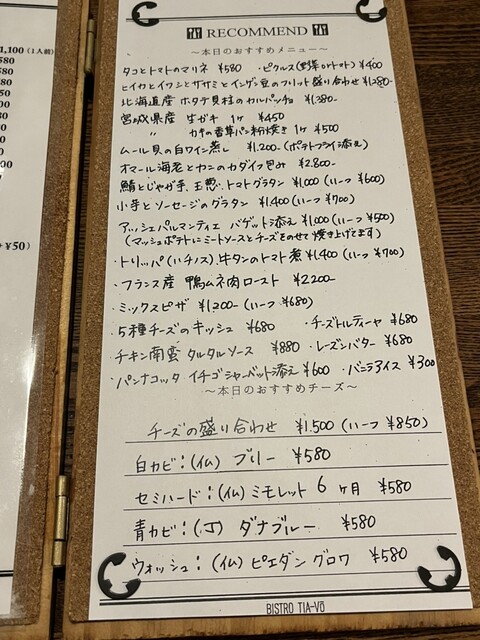 1,100 (1人前)
580
+¥50)
RECOMMEND
～本日のおすすめメニュー～
タコとトマトのマリネ ¥580 ・ピクルス(野菜 or トマト) ¥400
ヒイカとイワシとササミとインゲン豆のフリット盛り合わせ ¥1,280-
北海道産 ホタテ貝柱のカルパッチョ ¥1,380-
宮城県産 生ガキ 1ヶ ¥450
〃 カキの香草パン粉焼き 1ヶ ¥500
ムール貝の白ワイン蒸し ¥1,200-(ポテトフライ添え)
オマール海老とカニのカダイフ包み ¥2,800-
鯖とじゃが芋、玉葱、トマトグラタン ¥1,000(ハーフ ¥600)
小芋とソーセージのグラタン ¥1,400(ハーフ ¥700)
アッシェパルマンティエ バゲット添え ¥1,000(ハーフ ¥500)
(マッシュポテトにミートソースとチーズをのせて焼き上げてます)
・トリッパ(ハチノス)、牛タンのトマト煮 ¥1,400(ハーフ ¥700)
・フランス産 鴨ムネ肉ロースト ¥2,200-
・ミックスピザ ¥1,200-(ハーフ ¥680)
・5種チーズのキッシュ ¥680 ・チーズトルティーヤ ¥680
チキン南蛮 タルタルソース ¥880 ・レーズンバター ¥680
・パンナコッタ イチゴシャーベット添え ¥600 ・バニラアイス ¥300
～本日のおすすめチーズ～
チーズの盛り合わせ ¥1,500(ハーフ ¥850)
白カビ:(仏) ブリー ¥580
セミハード:(仏) ミモレット 6ヶ月 ¥580
青カビ: ダナブルー ¥580
ウォッシュ:(仏) ピエダングロワ ¥580
BISTRO TIA-Vō